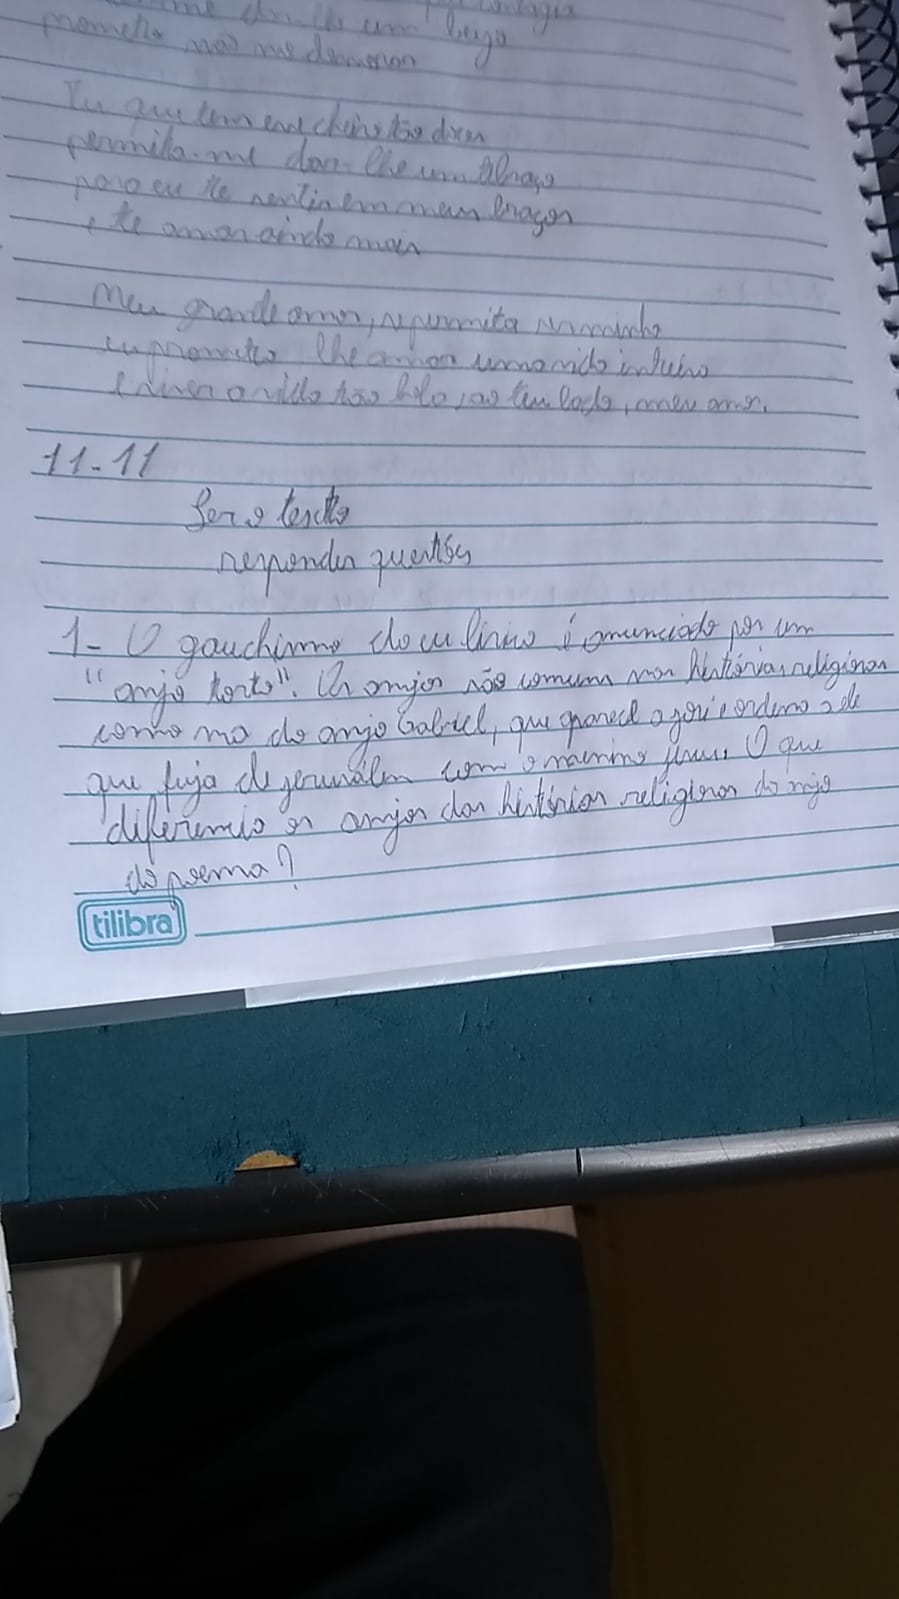 um beijo
prometo não me demorar
Tu que tem esse cheiro tão doce
permita-me dar-lhe um abraço
para eu te sentir em meus braços
e te amar ainda mais
Meu grande amor, se permita
eu prometo lhe amar uma vida inteira
e viver a vida tão bela, ao teu lado, meu amor.
11-11
Ler o texto
responder questões
1- O gauchismo do eu lírico é anunciado por um
"anjo torto". Os anjos são comuns nas histórias religiosas
como no do anjo Gabriel, que aparece a José e ordena a ele
que fuja de Jerusalém com o menino Jesus. O que
diferencia os anjos das histórias religiosas do anjo
do poema?
tilibra